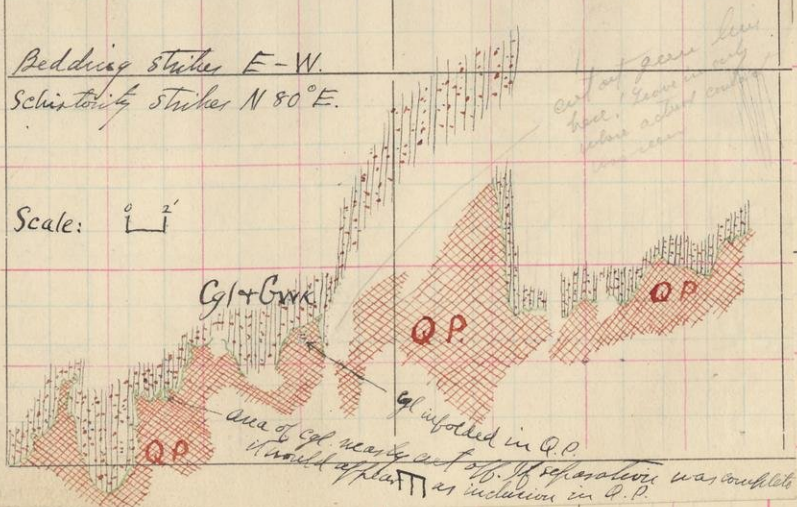 Bedding strikes E-W.
Schistosity strikes N 80° E.
cut out green line
here. Leave in only
where actual contact
was seen
Scale: 0 2'
Cgl + Gwk
Q.P.
Q.P.
Q.P.
cgl infolded in Q.P.
area of cgl nearly cut off. If separation was complete
it would appear as inclusion in Q.P.